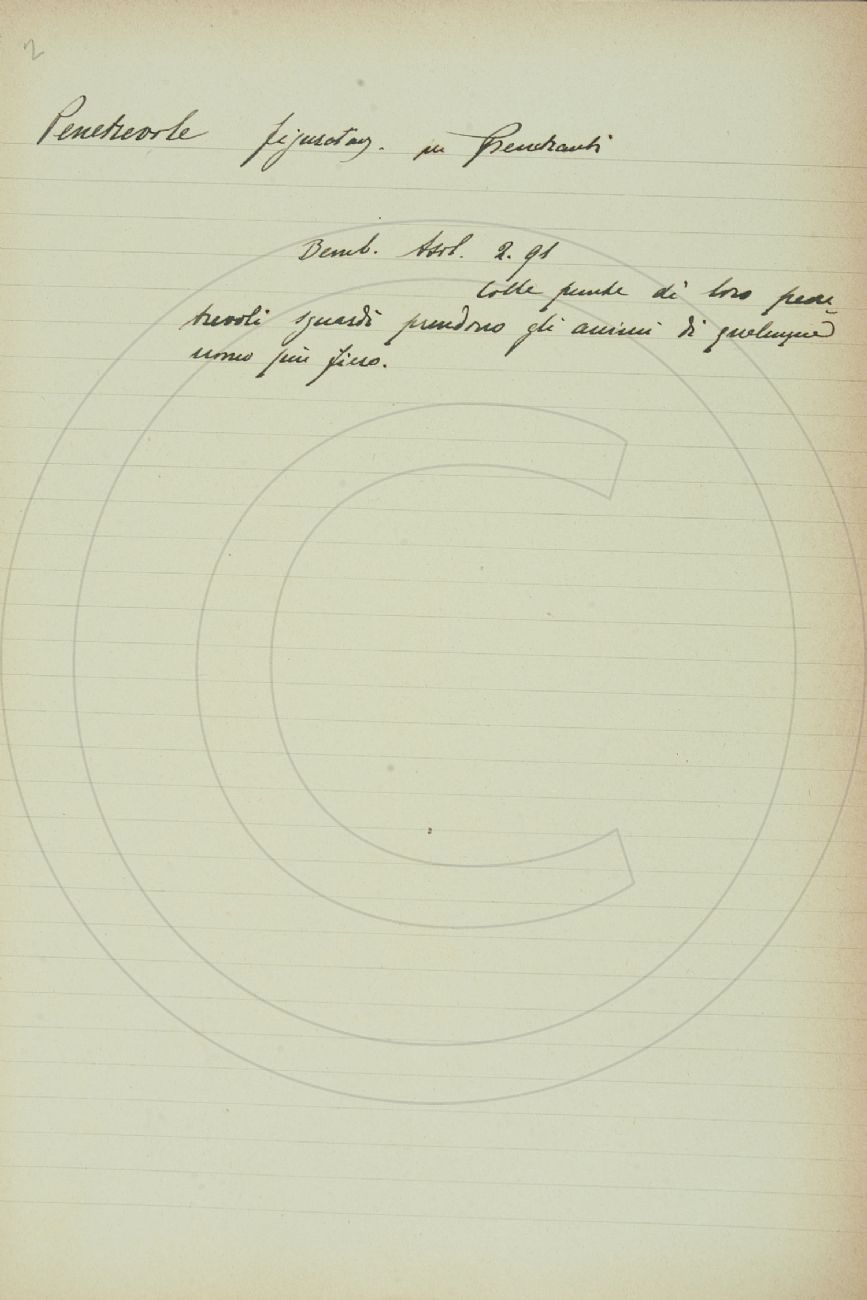 2
Penetrevole figuratam. per Penetranti
Bemb. Asol. 2. 91
Colle punte di loro pene
trevoli sguardi prendono gli animi di qualunque
uomo più fiero.